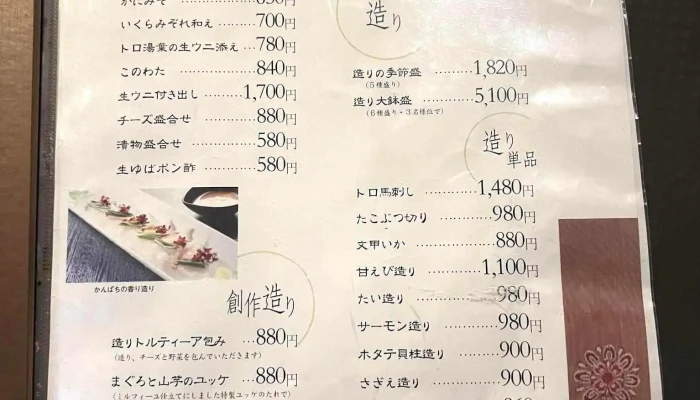 かにみそ
いくらみぞれ和え … 700円
トロ湯葉の生ウニ添え … 780円
このわた ………… 840円
生ウニ付き出し …… 1,700円
チーズ盛合せ ……… 880円
漬物盛合せ ………… 580円
生ゆばポン酢 ……… 580円
かんぱちの香り造り
創作造り
造りトルティーア包み … 880円
(造り、チーズと野菜を包んでいただきます)
まぐろと山芋のユッケ … 880円
(ミルフィーユ仕立てにしました特製ユッケのたれで)
造り
造りの季節盛 ……… 1,820円
(5種盛り)
造り大鉢盛 ………… 5,100円
(6種盛り・3名様位で)
造り
単品
トロ馬刺し ………… 1,480円
たこぶつ切り ……… 980円
文甲いか …………… 880円
甘えび造り ………… 1,100円
たい造り …………… 980円
サーモン造り ……… 980円
ホタテ貝柱造り …… 900円
さざえ造り ………… 900円